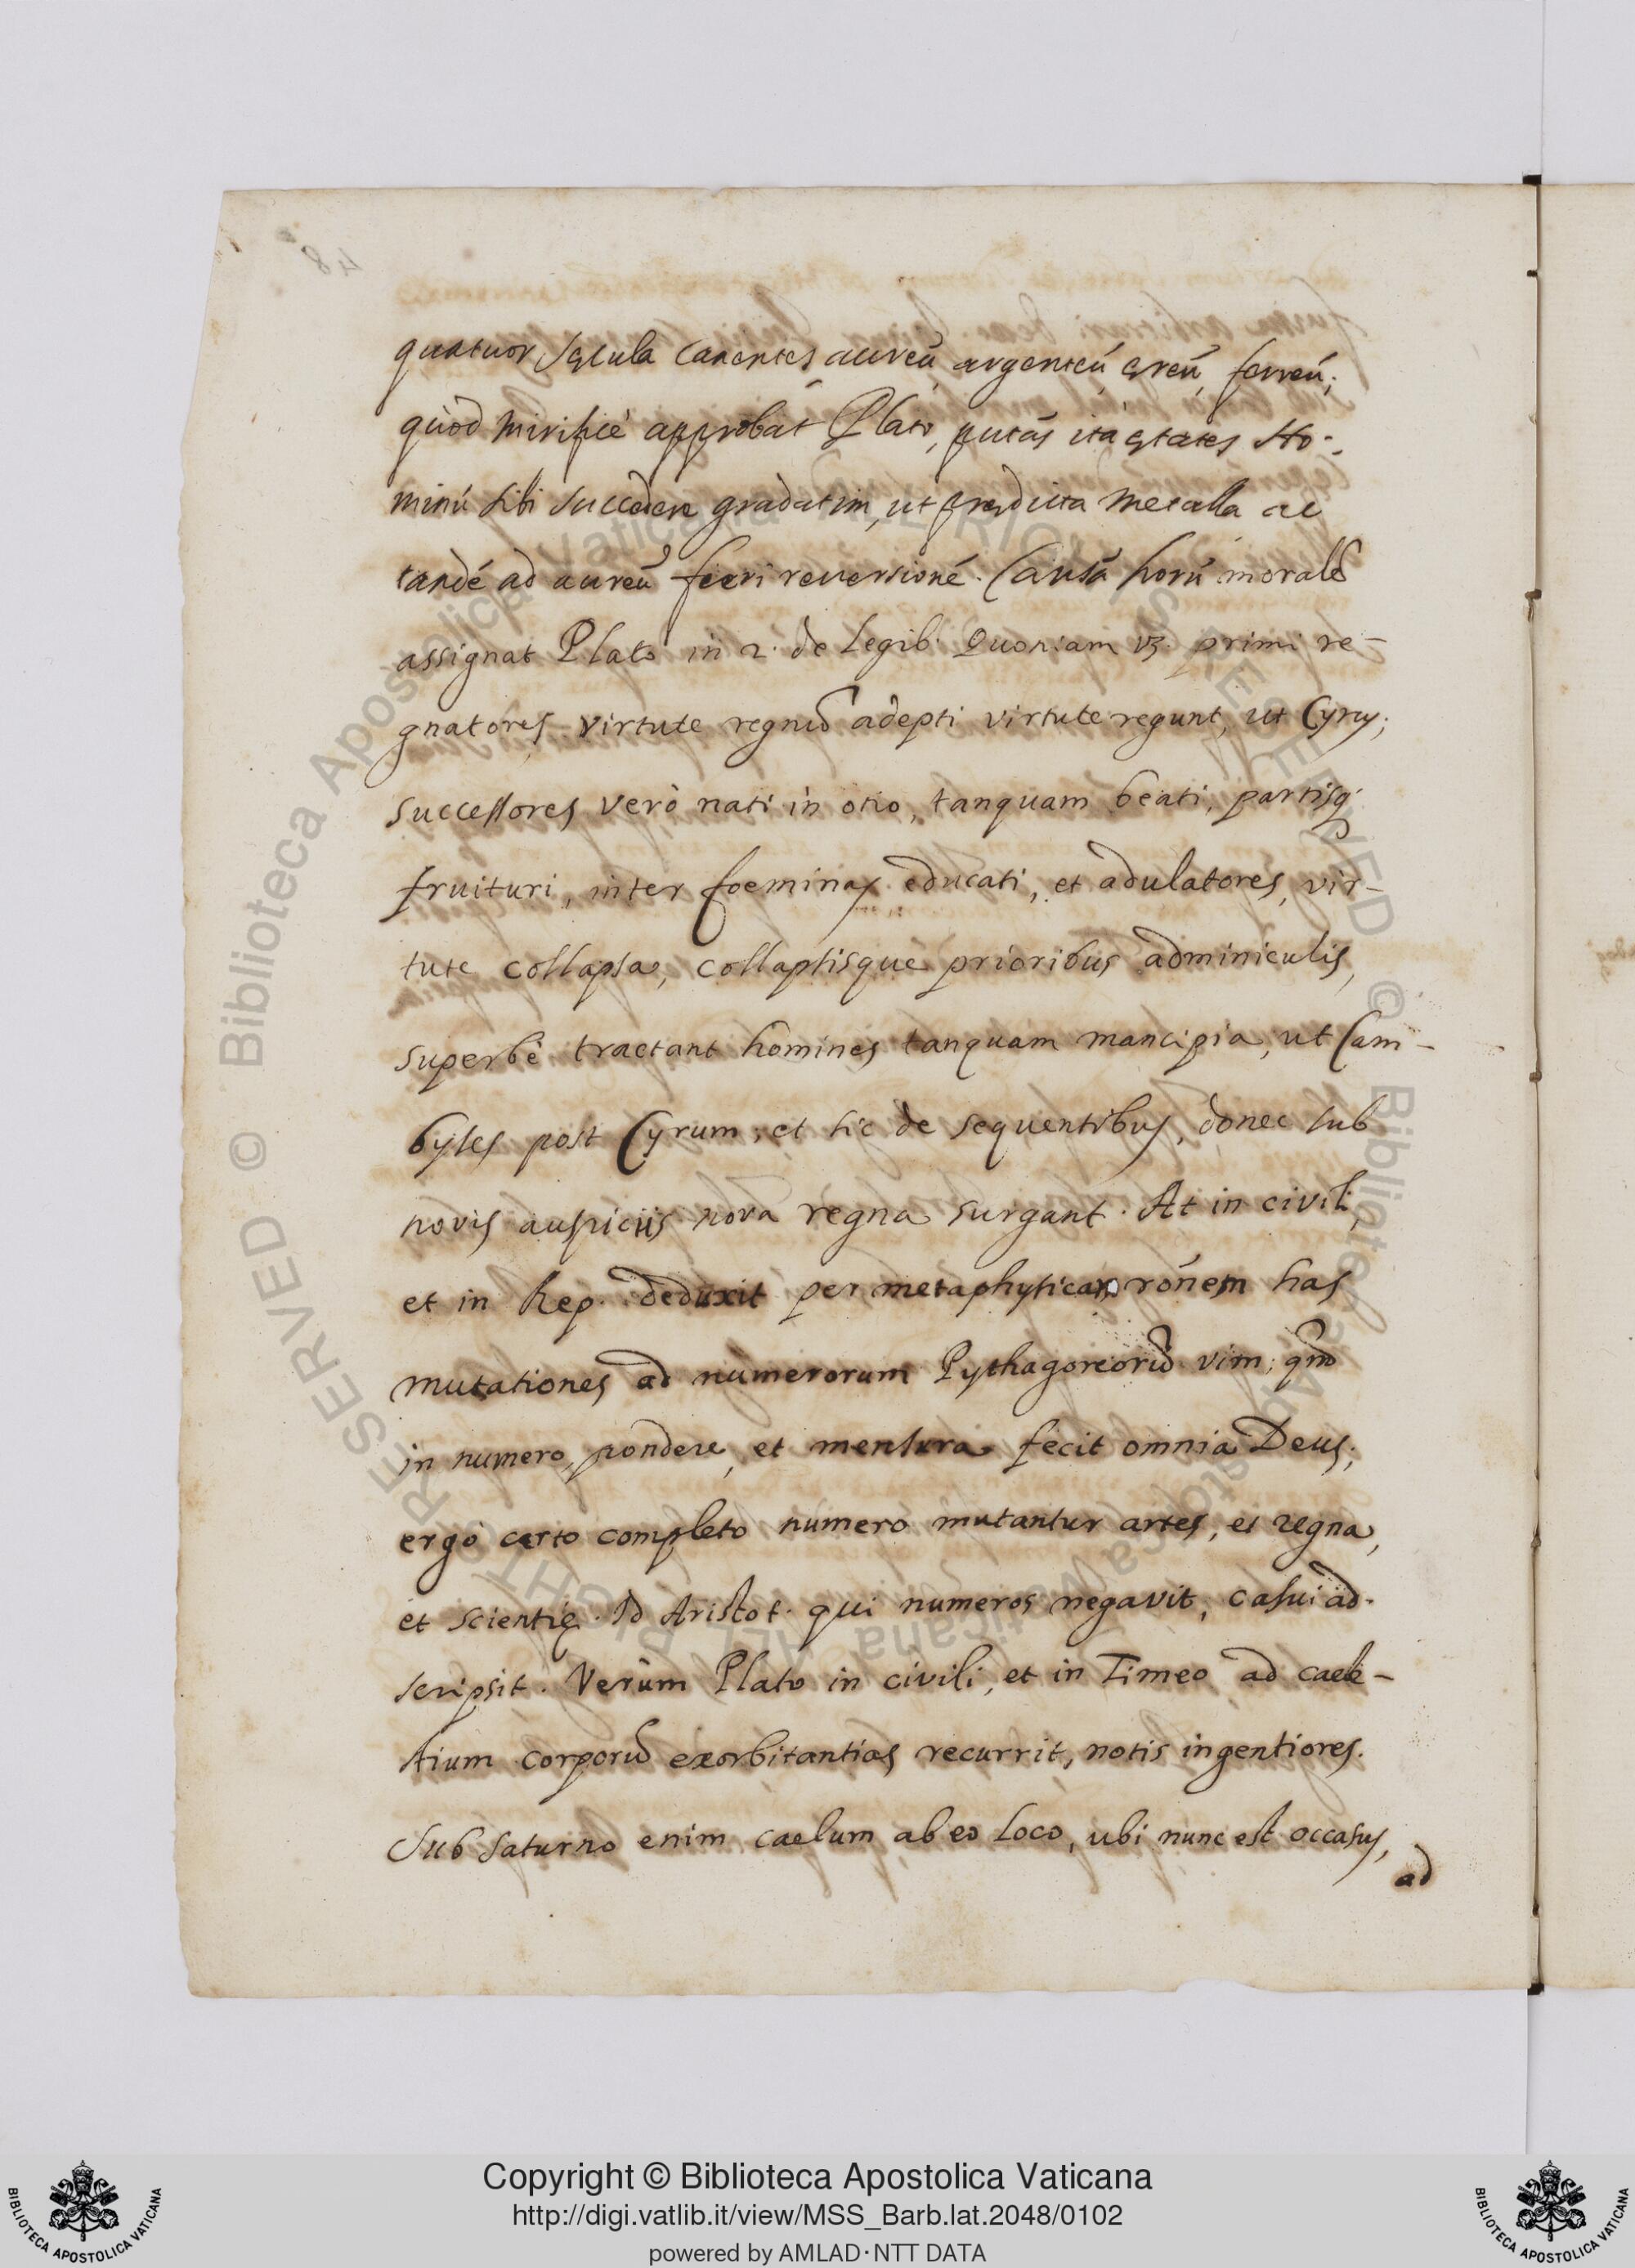 quatuor sęcula canentes aureũ, argenteũ ęreũ, ferreũ;
quòd mirificè approbat Plato, putãs ita ętates Ho-
minũ sibi succedere gradatim, ut prędicta metalla ac
tandẽ ad aureũ fieri reversionẽ. Causã horũ moralẽ
assignat Plato in 2. de Legib. Quoniam vz. primi re-
gnatores virtute regnũ adepti virtute regunt, ut Cyrus;
successores verò nati in otio, tanquam beati, partisq;
fruituri, inter foeminas educati, et adulatores, vir-
tute collapsa, collapsisque prioribus adminiculis,
superbè tractant homines tanquam mancipia, ut Cam-
byses post Cyrum; et sic de sequentibus, donec sub
novis auspiciis nova regna surgant. At in civili,
et in Rep. deduxit per metaphysicam rõnem has
mutationes ad numerorum Pythagoreorũ vim; qm̃
in numero, pondere, et mensura fecit omnia Deus;
ergò certo completo numero mutantur artes, et regna,
et scientię. Id Aristot. qui numeros negavit, casui ad-
scripsit. Verùm Plato in civili, et in Timeo ad caele-
stium corporũ exorbitantias recurrit, notis ingentiores.
Sub Saturno enim caelum ab eo loco, ubi nunc est occasus,
ad
Copyright © Biblioteca Apostolica Vaticana
http://digi.vatlib.it/view/MSS_Barb.lat.2048/0102
powered by AMLAD·NTT DATA
BIBLIOTECA APOSTOLICA VATICANA
BIBLIOTECA APOSTOLICA VATICANA